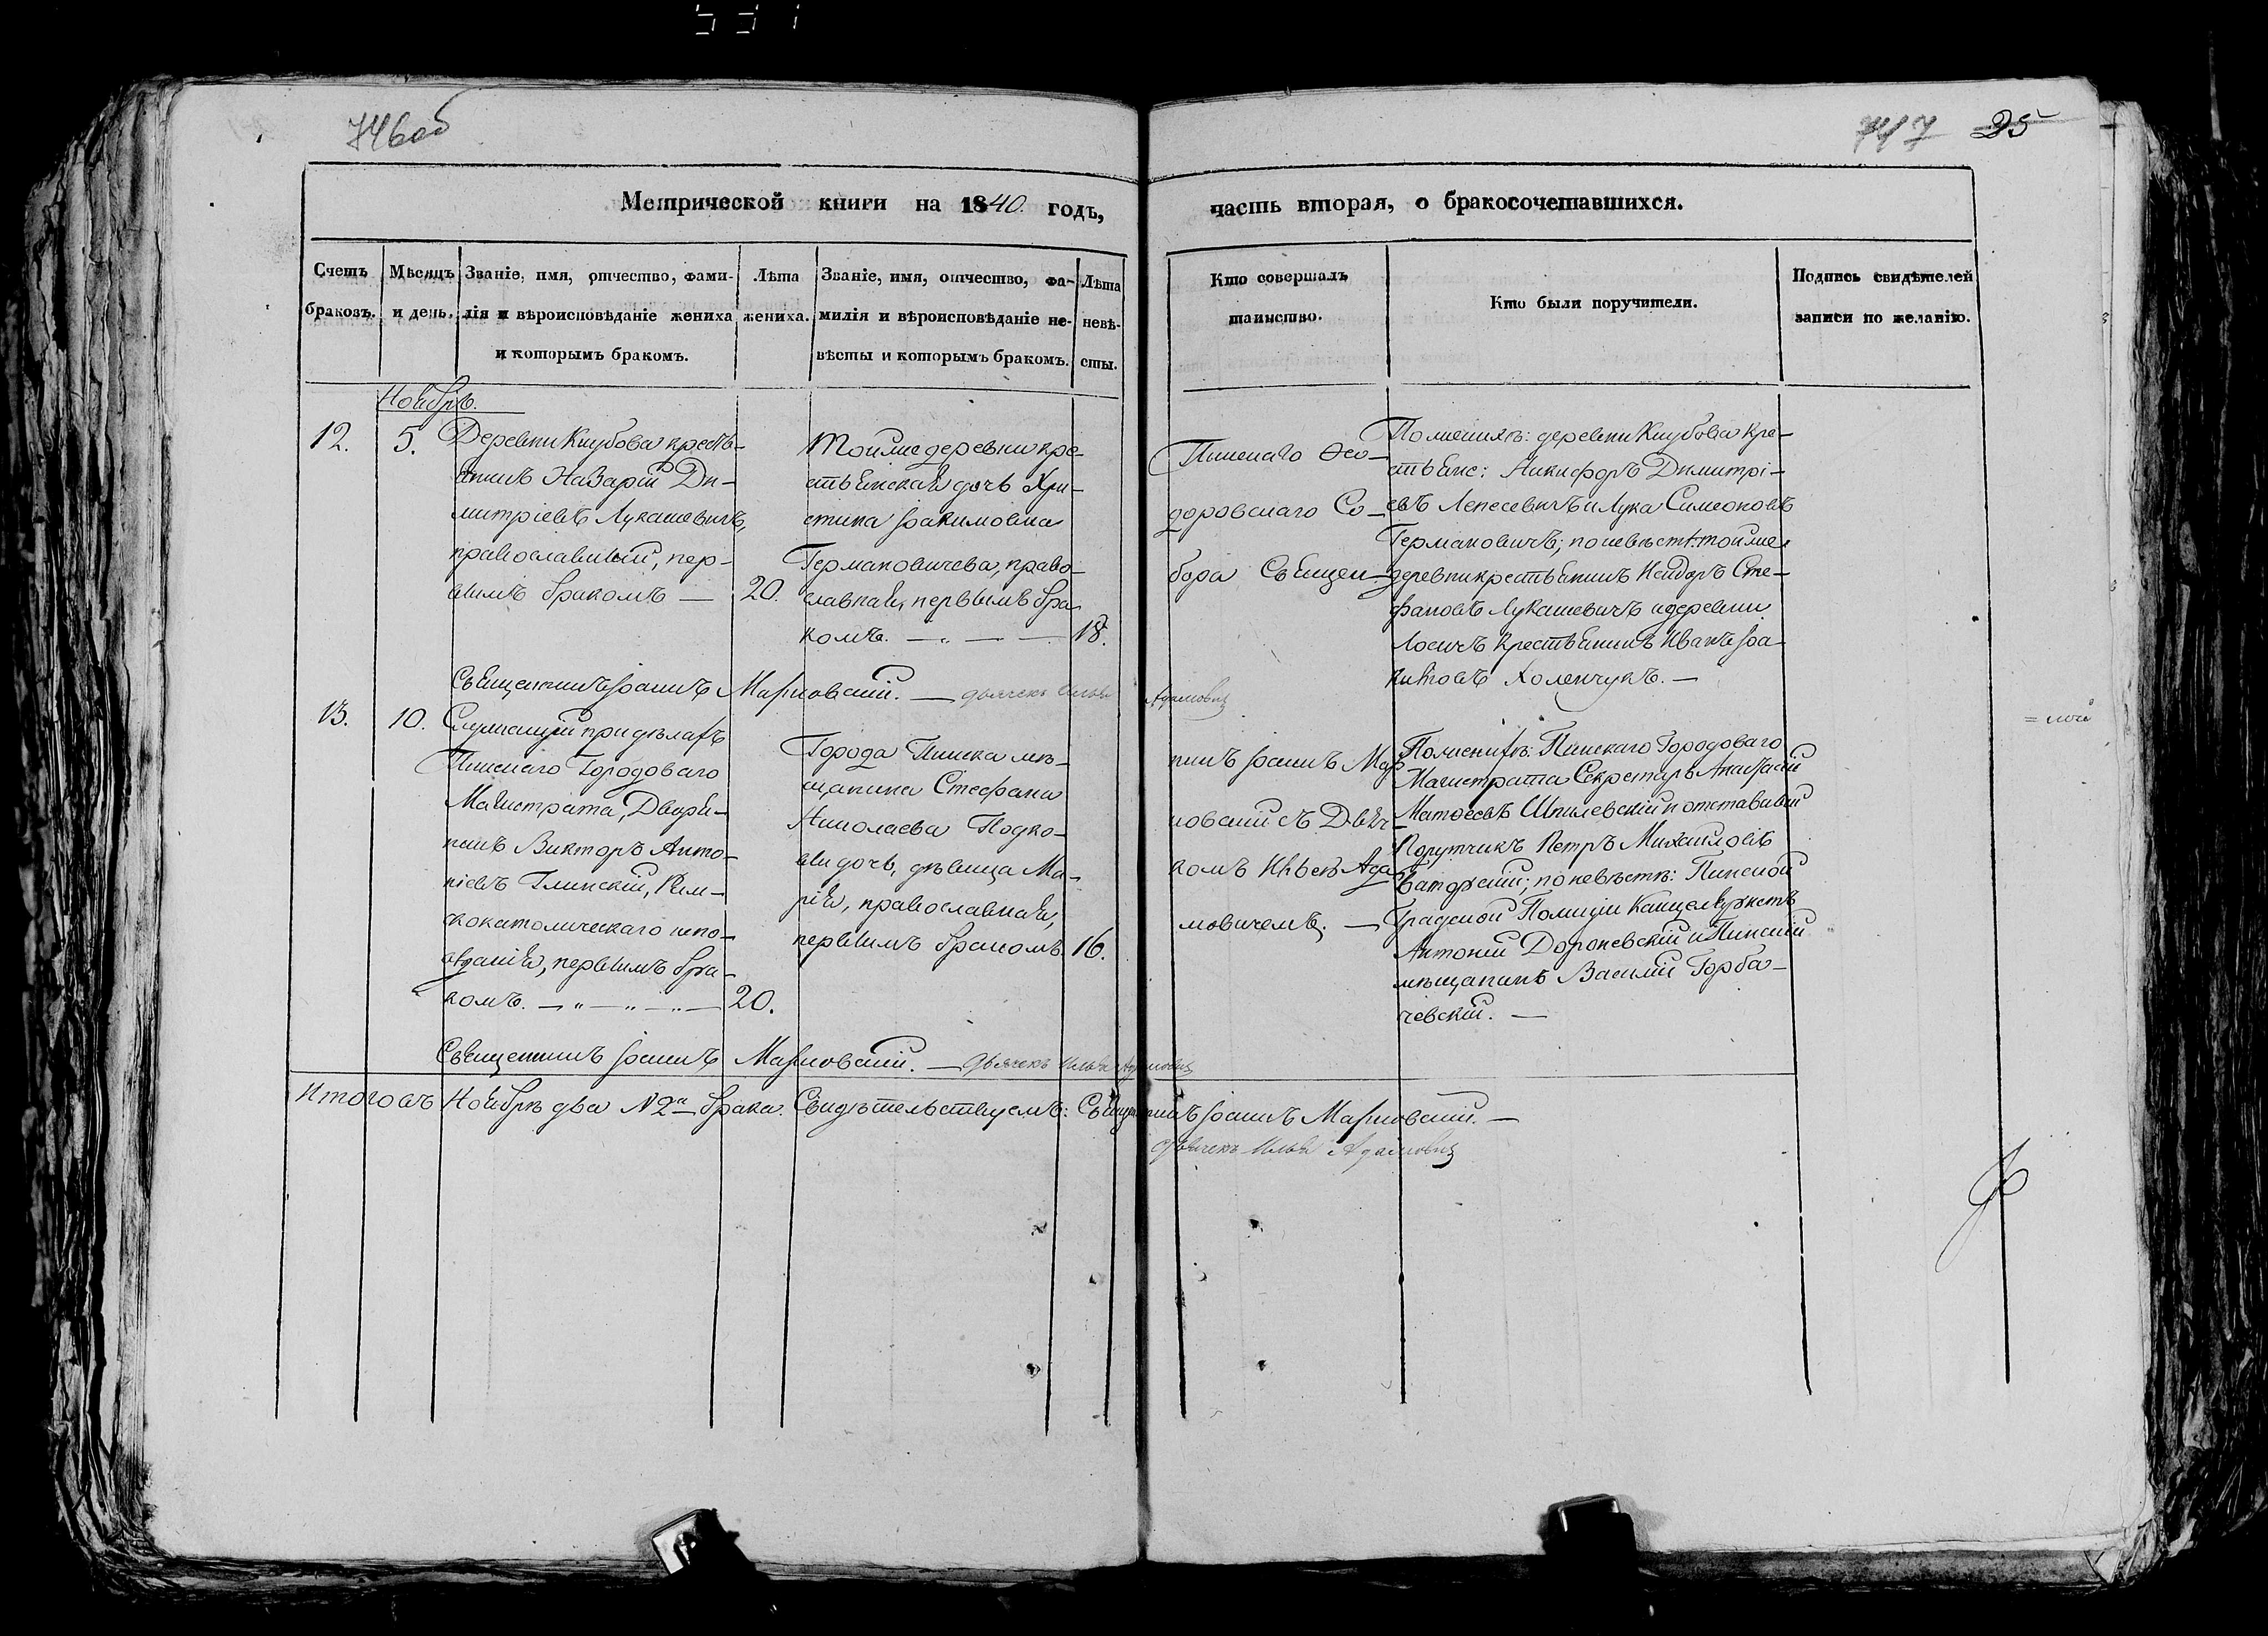 531
746об
747 25
Метрической книги на 1840. годъ,
часть вторая, о бракосочетавшихся.
Счетъ браковъ.
Мѣсяцъ и день.
Званіе, имя, отчество, фами-
лія и вѣроисповѣданіе жениха
и которымъ бракомъ.
Лѣта
жениха.
Званіе, имя, отчество, фа-
милія и вѣроисповѣданіе не-
вѣсты и которымъ бракомъ.
Лѣта
невѣ-
сты.
Кто совершалъ
таинство.
Кто были поручители.
Подпись свидѣтелей
записи по желанію.
Ноябрь.
12.
5.
Деревни Кнубова кресть-
янинъ Назарій Ди-
митріевъ Лукашевичъ,
православный, пер-
вымъ бракомъ —
20.
Тойже деревни кре-
стьянская дочь Хри-
стина Іоакимовна
Германовичева, право-
славная, первымъ бра-
комъ. — „ — —
18.
Пинскаго Ѳео-
доровскаго Со-
бора Священ-
По женихѣ: деревни Кнубова кре-
стьяне: Никифоръ Димитрі-
евъ Лепесевичъ и Лука Симеоновъ
Германовичъ; по невѣстѣ: тойже
деревни крестьянинъ Исидоръ Сте-
фановъ Лукашевичъ и деревни
Лосичъ крестьянинъ Иванъ
Холенчукъ. —
Священникъ Іоаннъ Марновскій. — дьячекъ Илья Адамовичъ
13.
10.
Служащій при дѣлахъ
Пинскаго Городоваго
Магистрата, Дворя-
нинъ Викторъ Анто-
ніевъ Глинскій, Рим-
скокатолическаго испо-
вѣданія, первымъ бра-
комъ. — „ — „ — „ —
20.
Города Пинска мѣ-
щанина Стефана
Николаева Подко-
вы дочь, дѣвица Ма-
рія, православная,
первымъ бракомъ.
16.
никъ Іоаннъ Мар-
новскій съ Дьяч-
комъ Ильею Ада-
мовичемъ. —
По женихѣ: Пинскаго Городоваго
Магистрата Секретарь Анастасій
Матѳеевъ Шпилевскій и отставный
Порутчикъ Петръ Михайловъ
по невѣстѣ: Пинской
Градской Полиціи Канцеляристъ
Антоній Дороневскій и Пинскій
мѣщанинъ Василій Горба-
чевскій. —
Священникъ Іоаннъ Марновскій. — Дьячекъ Илья Адамовичъ
Итого въ Ноябрѣ два № 2а брака. Свидѣтельствуемъ: Священникъ Іоаннъ Марновскій. —
Дьячекъ Илья Адамовичъ